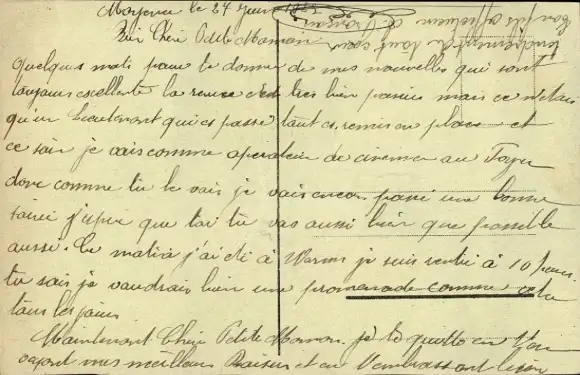 Mayence le 24 juin
Bien Chère Petite Maman
quelques mots pour te donner de mes nouvelles qui sont
toujours excellente la revue c'est très bien passée mais ce n'étais
qu'un lieutenant qui es passé tout es remis en place et
ce soir je vais comme operateur de cinema au Foyer
donc comme tu le vois je vais encore passé une bonne
soirée j'espere que toi tu vas aussi bien que possible
aussi. Ce matin j'ai été à Worms je suis rentré à 10 heures
tu sais je voudrais bien une promenade comme cela
tous les jours
Maintenant Chère Petite Maman je te quitte en t'en
voyant mes meilleurs Baisers et en t'embrassant
Ton fils affectueux
tendrement de tout cœur